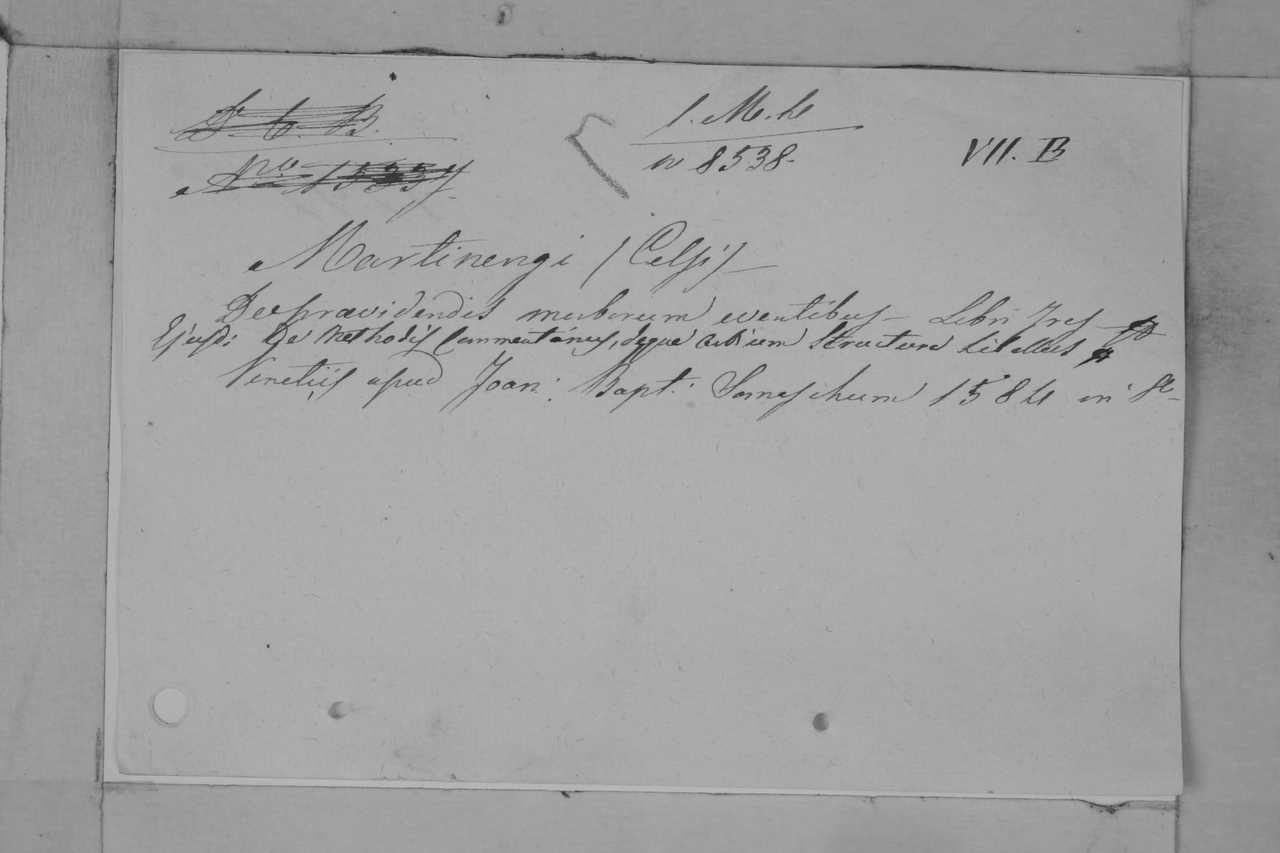 F. C. B.
No 15357
1. M. 4
n 8538-
VII. B
Martinengi (Celsi)
De prævidendis morborum eventibus Libri Tres
Ejusd: De Methodis Commentarius, deque Artium Structura Libellus
Venetiis apud Joan: Bapt: Somaschum 1584 in